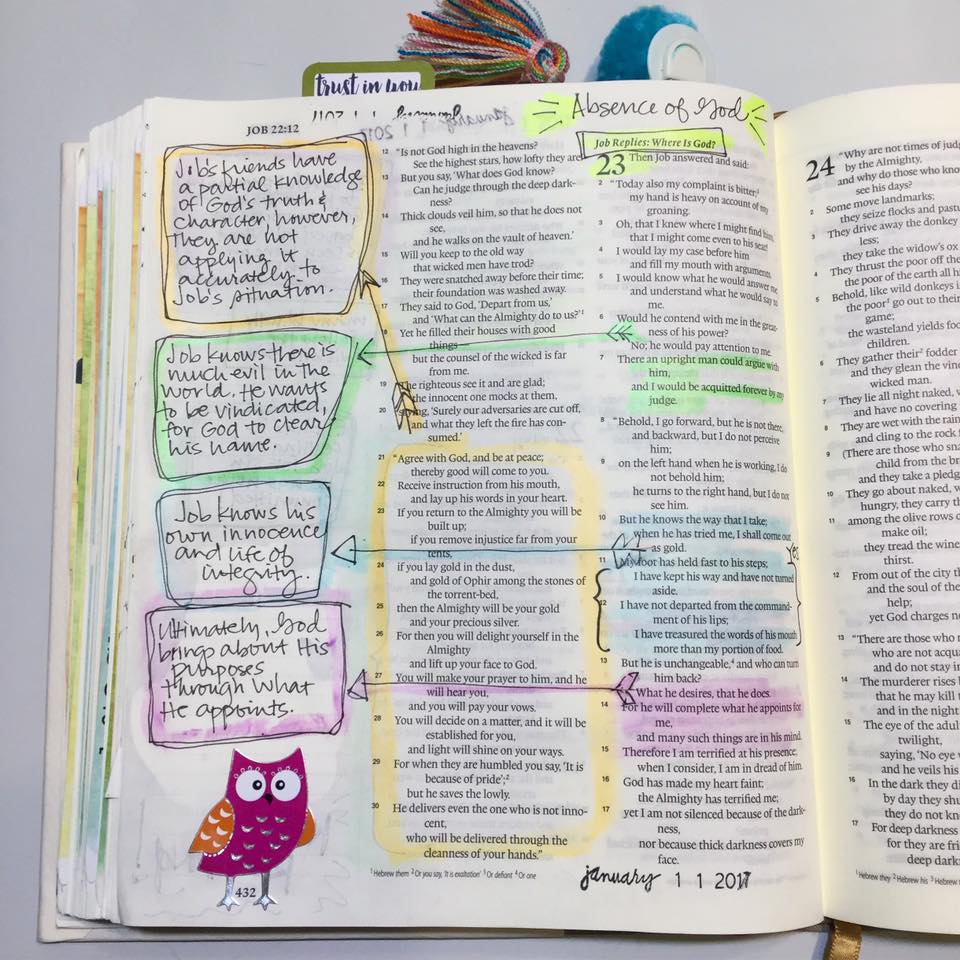 trust in you
Absence of God
JOB 22:12
Job's friends have
a partial knowledge
of God's truth &
character, however,
they are not
applying it
accurately to
Job's situation.
Job knows there is
much evil in the
world. He wants
to be vindicated,
for God to clear
his name.
Job knows his
own innocence
and life of
integrity.
Ultimately, God
brings about His
purposes
through what
He appoints.
432
12 "Is not God high in the heavens?
See the highest stars, how lofty they are!
13 But you say, 'What does God know?
Can he judge through the deep dark-
ness?
14 Thick clouds veil him, so that he does not
see,
and he walks on the vault of heaven.'
15 Will you keep to the old way
that wicked men have trod?
16 They were snatched away before their time;
their foundation was washed away.
17 They said to God, 'Depart from us,'
and 'What can the Almighty do to us?'1
18 Yet he filled their houses with good
things—
but the counsel of the wicked is far
from me.
19 The righteous see it and are glad;
the innocent one mocks at them,
20 saying, 'Surely our adversaries are cut off,
and what they left the fire has con-
sumed.'
21 "Agree with God, and be at peace;
thereby good will come to you.
22 Receive instruction from his mouth,
and lay up his words in your heart.
23 If you return to the Almighty you will be
built up;
if you remove injustice far from your
tents,
24 if you lay gold in the dust,
and gold of Ophir among the stones of
the torrent-bed,
25 then the Almighty will be your gold
and your precious silver.
26 For then you will delight yourself in the
Almighty
and lift up your face to God.
27 You will make your prayer to him, and he
will hear you,
and you will pay your vows.
28 You will decide on a matter, and it will be
established for you,
and light will shine on your ways.
29 For when they are humbled you say, 'It is
because of pride';2
but he saves the lowly.
30 He delivers even the one who is not inno-
cent,
who will be delivered through the
cleanness of your hands."
Job Replies: Where Is God?
23 Then Job answered and said:
2 "Today also my complaint is bitter;3
my hand is heavy on account of my
groaning.
3 Oh, that I knew where I might find him,
that I might come even to his seat!
4 I would lay my case before him
and fill my mouth with arguments.
5 I would know what he would answer me
and understand what he would say to
me.
6 Would he contend with me in the great-
ness of his power?
No; he would pay attention to me.
7 There an upright man could argue with
him,
and I would be acquitted forever by my
judge.
8 "Behold, I go forward, but he is not there,
and backward, but I do not perceive
him;
9 on the left hand when he is working, I do
not behold him;
he turns to the right hand, but I do not
see him.
10 But he knows the way that I take;
when he has tried me, I shall come out
as gold.
Yes
11 My foot has held fast to his steps;
I have kept his way and have not turned
aside.
12 I have not departed from the command-
ment of his lips;
I have treasured the words of his mouth
more than my portion of food.
13 But he is unchangeable,4 and who can turn
him back?
What he desires, that he does.
14 For he will complete what he appoints for
me,
and many such things are in his mind.
15 Therefore I am terrified at his presence;
when I consider, I am in dread of him.
16 God has made my heart faint;
the Almighty has terrified me;
17 yet I am not silenced because of the dark-
ness,
nor because thick darkness covers my
face.
1 Hebrew them 2 Or you say, 'It is exaltation' 3 Or defiant 4 Or one
january 1 1 2017
24 "Why are not times of judg
by the Almighty,
and why do those who know
see his days?
2 Some move landmarks;
they seize flocks and pastu
3 They drive away the donkey
less;
they take the widow's ox
4 They thrust the poor off the
the poor of the earth all
5 Behold, like wild donkeys i
the poor1 go out to their
game;
the wasteland yields foo
children.
6 They gather their2 fodder
and they glean the vin
wicked man.
7 They lie all night naked, w
and have no covering
8 They are wet with the rain
and cling to the rock f
9 (There are those who sna
child from the br
and they take a pledg
10 They go about naked, w
hungry, they carry th
11 among the olive rows o
make oil;
they tread the wine
thirst.
12 From out of the city th
and the soul of the
help;
yet God charges no
13 "There are those who r
who are not acqua
and do not stay in
14 The murderer rises b
that he may kill t
and in the night
15 The eye of the adul
twilight,
saying, 'No eye w
and he veils his
16 In the dark they di
by day they shu
they do not kno
17 For deep darkness
for they are frie
deep dark
1 Hebrew they 2 Hebrew his 3 Hebrew